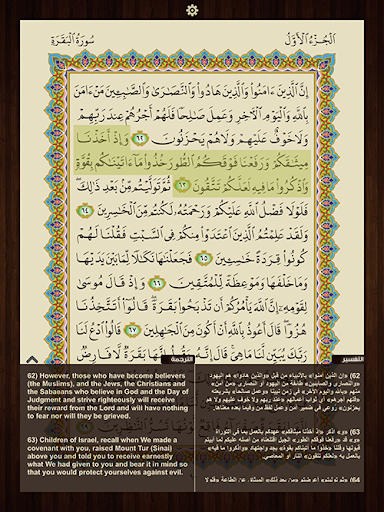 اَلْجُزْءُ الْأَوَّلُ
سُورَةُ الْبَقَرَةِ
إِنَّ ٱلَّذِينَ ءَامَنُوا۟ وَٱلَّذِينَ هَادُوا۟ وَٱلنَّصَٰرَىٰ وَٱلصَّٰبِـِٔينَ مَنْ ءَامَنَ
بِٱللَّهِ وَٱلْيَوْمِ ٱلْءَاخِرِ وَعَمِلَ صَٰلِحًا فَلَهُمْ أَجْرُهُمْ عِندَ رَبِّهِمْ
وَلَا خَوْفٌ عَلَيْهِمْ وَلَا هُمْ يَحْزَنُونَ ٦٢ وَإِذْ أَخَذْنَا
مِيثَٰقَكُمْ وَرَفَعْنَا فَوْقَكُمُ ٱلطُّورَ خُذُوا۟ مَآ ءَاتَيْنَٰكُم بِقُوَّةٍ
وَٱذْكُرُوا۟ مَا فِيهِ لَعَلَّكُمْ تَتَّقُونَ ٦٣ ثُمَّ تَوَلَّيْتُم مِّنۢ بَعْدِ ذَٰلِكَ ۖ
فَلَوْلَا فَضْلُ ٱللَّهِ عَلَيْكُمْ وَرَحْمَتُهُۥ لَكُنتُم مِّنَ ٱلْخَٰسِرِينَ ٦٤
وَلَقَدْ عَلِمْتُمُ ٱلَّذِينَ ٱعْتَدَوْا۟ مِنكُمْ فِى ٱلسَّبْتِ فَقُلْنَا لَهُمْ
كُونُوا۟ قِرَدَةً خَٰسِـِٔينَ ٦٥ فَجَعَلْنَٰهَا نَكَٰلًا لِّمَا بَيْنَ يَدَيْهَا
وَمَا خَلْفَهَا وَمَوْعِظَةً لِّلْمُتَّقِينَ ٦٦ وَإِذْ قَالَ مُوسَىٰ
لِقَوْمِهِۦٓ إِنَّ ٱللَّهَ يَأْمُرُكُمْ أَن تَذْبَحُوا۟ بَقَرَةً ۖ قَالُوٓا۟ أَتَتَّخِذُنَا
هُزُوًا ۖ قَالَ أَعُوذُ بِٱللَّهِ أَنْ أَكُونَ مِنَ ٱلْجَٰهِلِينَ ٦٧ قَالُوا۟ ٱدْعُ لَنَا
رَبَّكَ يُبَيِّن لَّنَا مَا هِىَ ۚ قَالَ إِنَّهُۥ يَقُولُ إِنَّهَا بَقَرَةٌ لَّا فَارِضٌ
التفسير
الترجمة
62) However, those who have become believers
(the Muslims), and the Jews, the Christians and
the Sabaeans who believe in God and the Day of
Judgment and strive righteously will receive
their reward from the Lord and will have nothing
to fear nor will they be grieved.
63) Children of Israel, recall when We made a
covenant with you, raised Mount Tur (Sinai)
above you and told you to receive earnestly
what We had given to you and bear it in mind so
that you would protect yourselves against evil.
62) «إن الذين آمنوا» بالأنبياء من قبل «والذين هادوا» هم اليهود
«والنصارى والصابئين» طائفة من اليهود أو النصارى «من آمن»
63) «و» اذكر «إذ أخذنا ميثاقكم» عهدكم بالعمل بما في التوراة